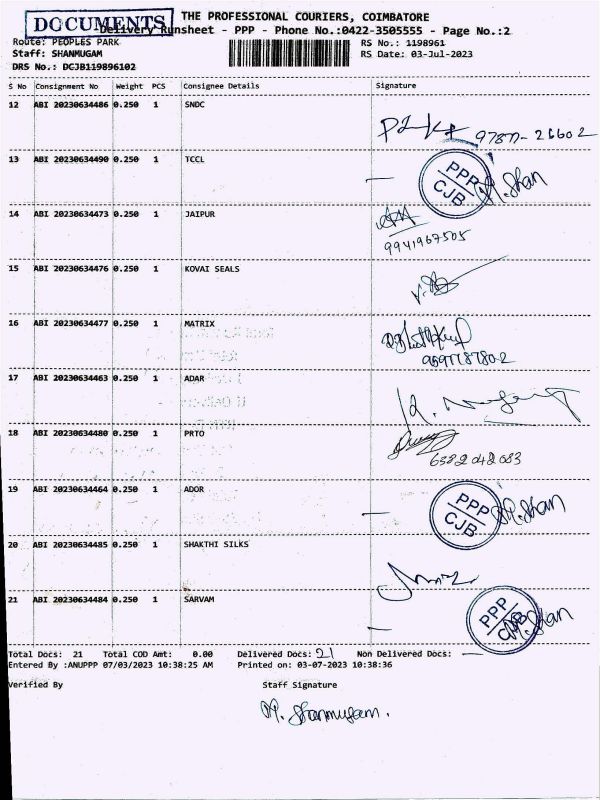 DOCUMENTS
THE PROFESSIONAL COURIERS, COIMBATORE
Delivery Runsheet - PPP - Phone No.:0422-3505555 - Page No.:2
Route: PEOPLES PARK RS No.: 1198961
Staff: SHANMUGAM RS Date: 03-Jul-2023
DRS No.: DCJB119896102
S No Consignment No Weight PCS Consignee Details Signature
12 ABI 20230634486 0.250 1 SNDC
13 ABI 20230634490 0.250 1 TCCL
PPP CJB M.Shan
14 ABI 20230634473 0.250 1 JAIPUR
9941967505
15 ABI 20230634476 0.250 1 KOVAI SEALS
16 ABI 20230634477 0.250 1 MATRIX
17 ABI 20230634463 0.250 1 ADAR
18 ABI 20230634480 0.250 1 PRTO
6382042683
19 ABI 20230634464 0.250 1 ADOR
PPP CJB M.Shan
20 ABI 20230634485 0.250 1 SHAKTHI SILKS
21 ABI 20230634484 0.250 1 SARVAM
PPP CJB M.Shan
Total Docs: 21 Total COD Amt: 0.00 Delivered Docs: 21 Non Delivered Docs: —
Entered By :ANUPPP 07/03/2023 10:38:25 AM Printed on: 03-07-2023 10:38:36
Verified By Staff Signature
M. Shanmugam.